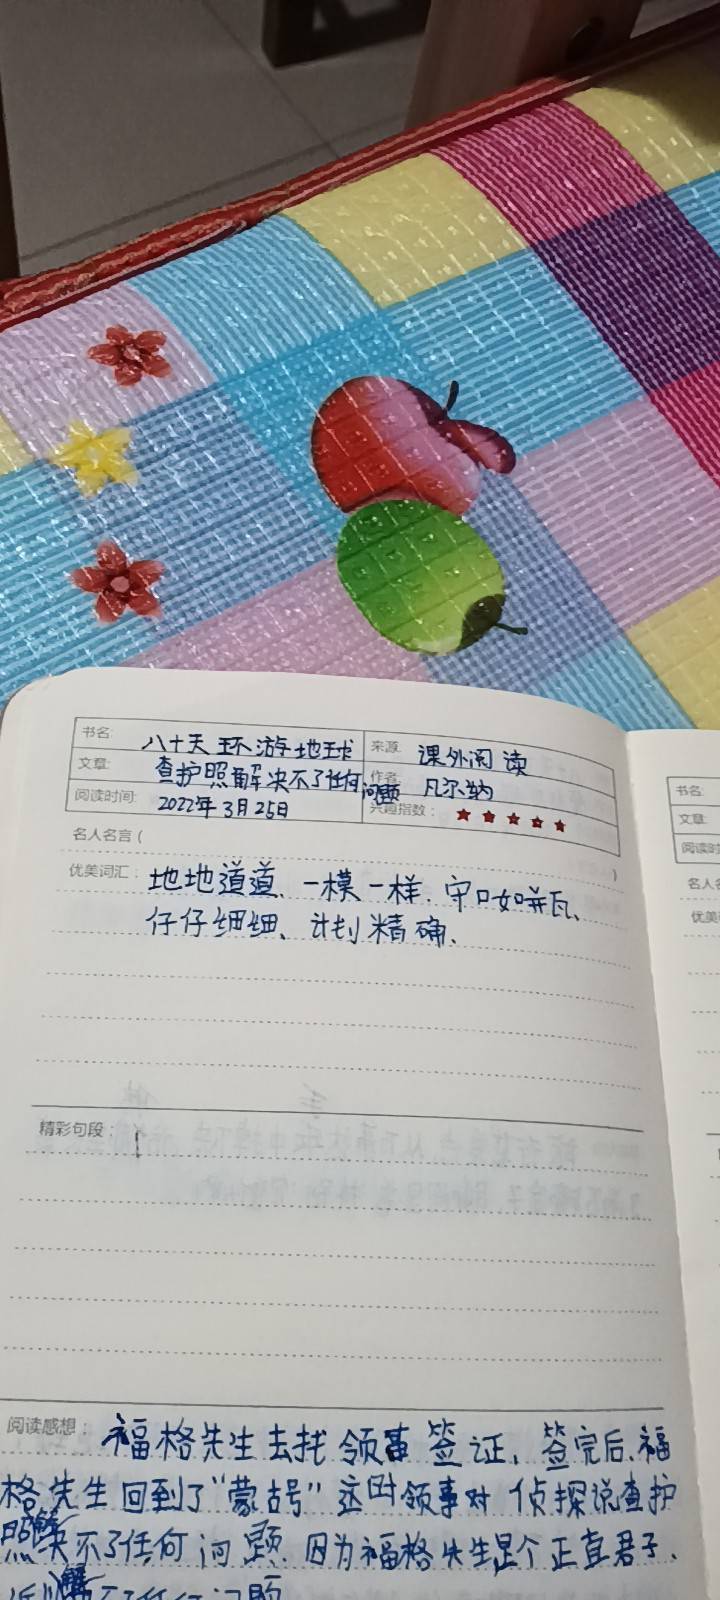 书名: 八十天环游地球 来源: 课外阅读
文章: 查护照解决不了任何问题 作者: 凡尔纳
阅读时间: 2022年3月25日 兴趣指数: ★ ★ ★ ★ ★
名人名言 ( )
优美词汇: 地地道道、一模一样、守口如瓶、
仔仔细细、计划精确、
精彩句段:
阅读感想: 福格先生去找领事签证、签完后、福
格先生回到了“蒙古号”这时领事对侦探说查护
照解决不了任何问题、因为福格先生是个正直君子、
书名:
文章:
阅读时
名人名
优美